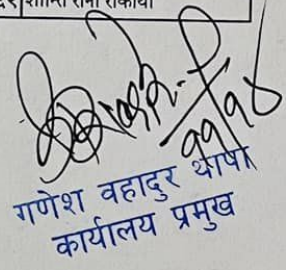 शान्ति राना राकाया
११/१४
गणेश वहादुर थापा
कार्यालय प्रमुख